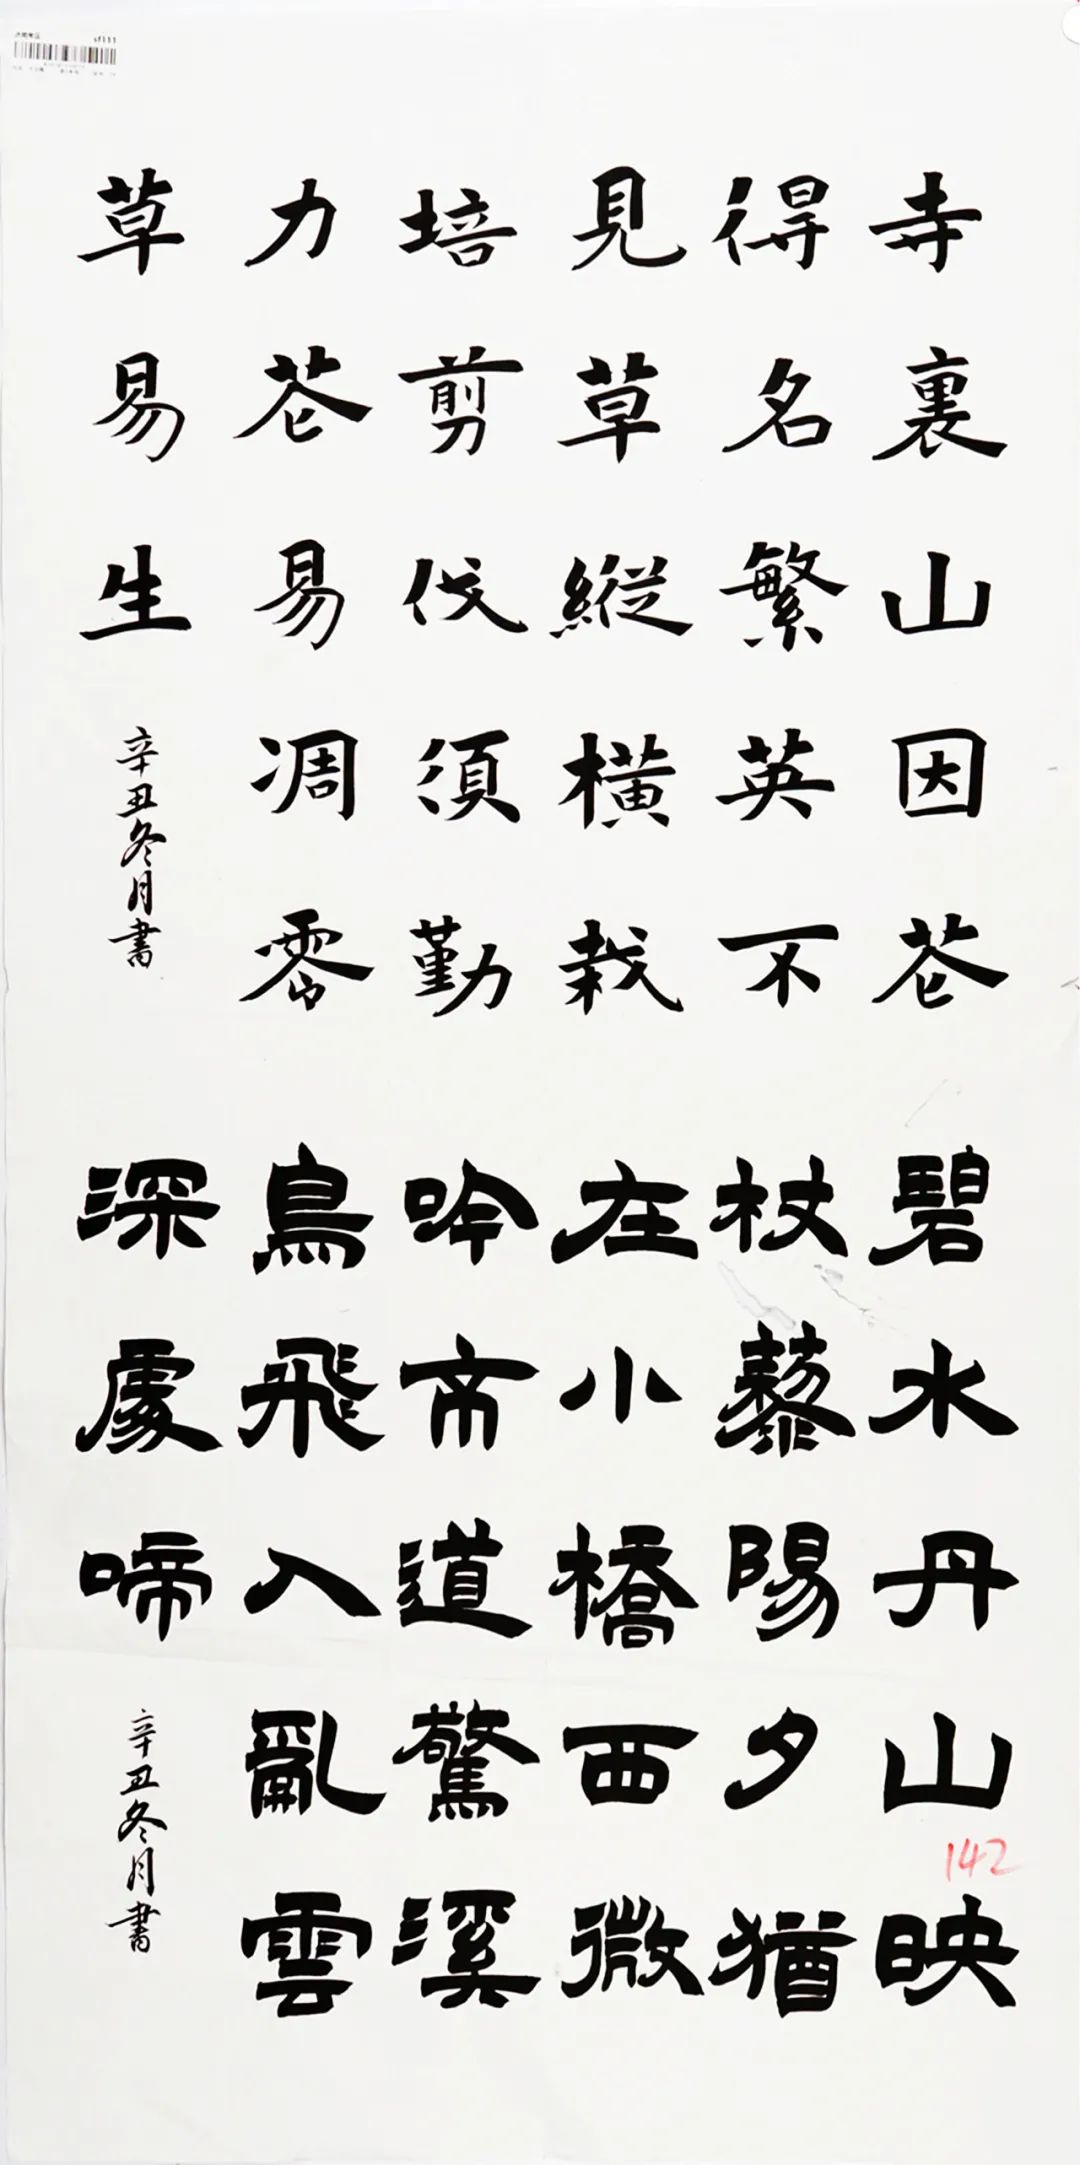 寺裏山因花
得名繁英不
見草縱橫栽
培剪伐須勤
力花易凋零
草易生
辛丑冬月書
碧水丹山映
杖藜陽夕猶
在小橋西微
吟不道驚溪
鳥飛入亂雲
深處啼
辛丑冬月書
142